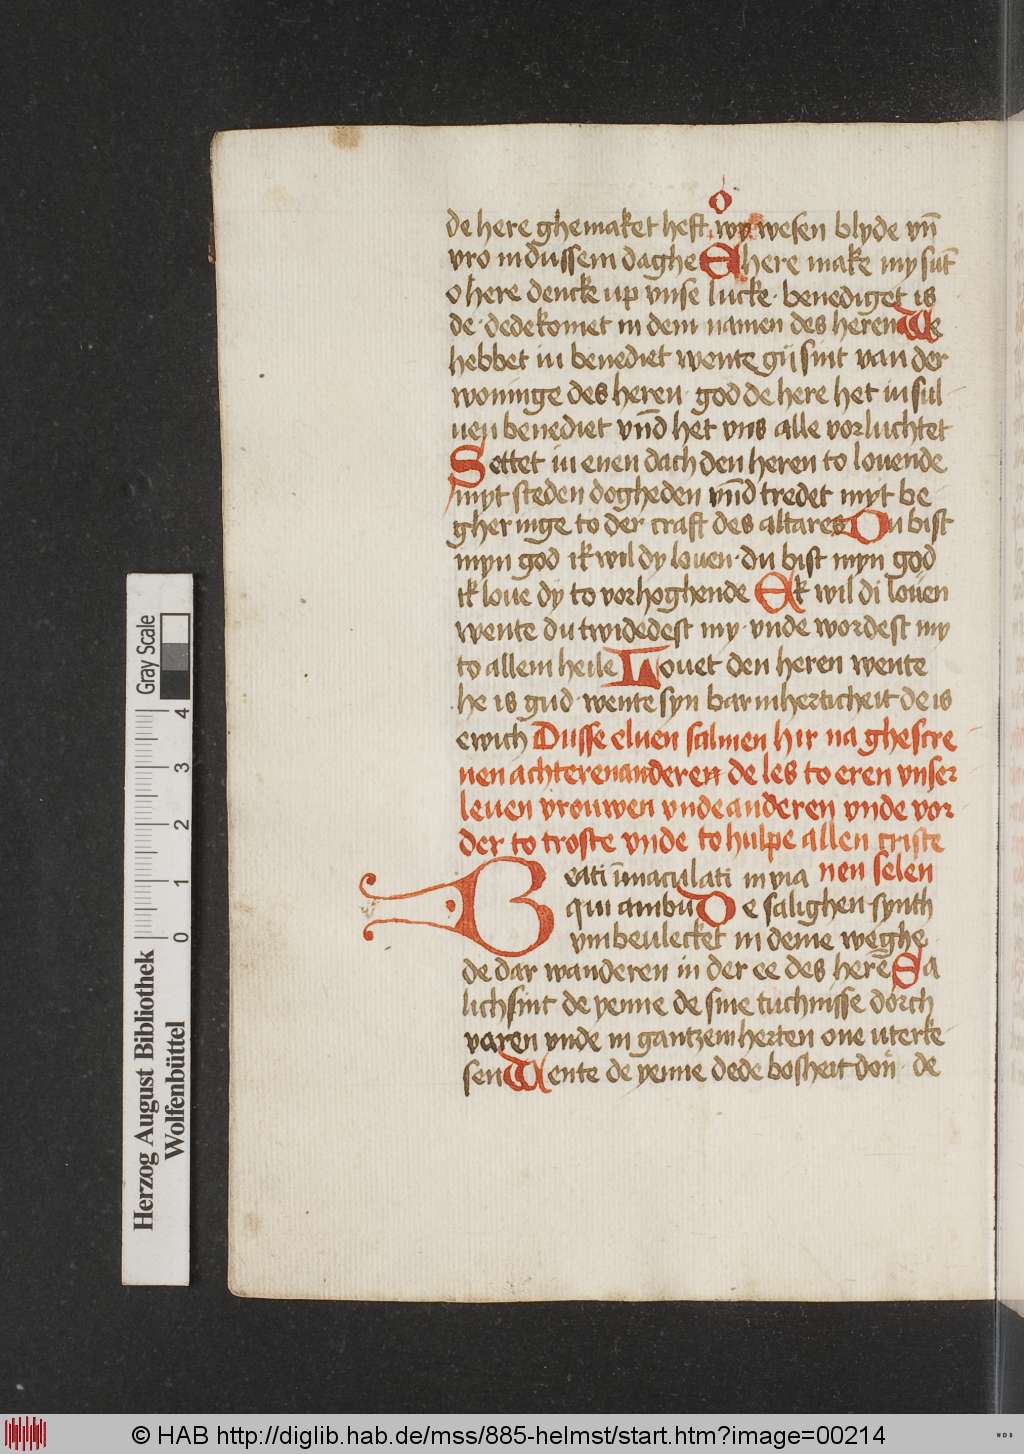 o
de here ghemaket heft wy wesen blyde vn̄
vro in dussem daghe O here make my sūt
o here dencke up vnse lucke · benediget is
de · dede komet in dem namen des heren We
hebbet iu benediet wente gij sint van der
woninge des heren · god de here het iu sul
uen benediet vn̄d het vns alle vorluchtet
Settet iu enen dach den heren to louende
myt steden dogheden vn̄d tredet myt be
gheringe to der craft des altares Du bist
myn god ik wil dy louen · du bist myn god
ik loue dy to vorhoghende Ek wil di louen
wente du twidedest my · vnde wordest my
to allem heile Louet den heren wente
he is gud · wente syn barmherticheit de is
ewich Dusse eluen salmen hir na ghescre
uen achterenanderen de les to eren vnser
leuen vrouwen vnde anderen vnde vor
der to troste vnde to hulpe allen criste
Beati īmaculati in via nen selen
qui ambu De salighen synth
vmbeulecket in deme weghe
de dar wanderen in der ee des herē Sa
lich sint de yenne de sine tuchnisse dorch
varen vnde in gantzem herten one uterke
sen Wente de yenne dede bosheit don · de
Gray Scale
4 3 2 1 0
Herzog August Bibliothek
Wolfenbüttel
© HAB http://diglib.hab.de/mss/885-helmst/start.htm?image=00214